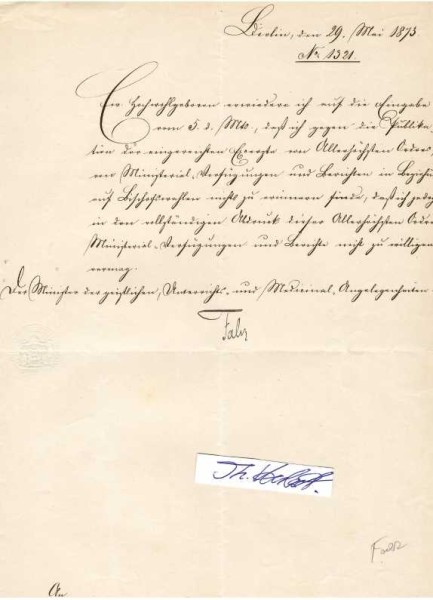 Berlin, den 29. Mai 1873
No. 1321.
Ew. Hochwohlgeboren erwiedere ich auf die Eingabe
vom 5. d. Mts., daß ich gegen die Publika-
tion der eingereichten Excerpte von Allerhöchsten Orders,
von Ministerial-Verfügungen und Berichten in Beziehung
auf Bischofswahlen nichts zu erinnern finde, daß ich jedoch
in den vollständigen Abdruck dieser Allerhöchsten Orders
Ministerial-Verfügungen und Berichte nicht zu willigen
vermag.
Der Minister der geistlichen, Unterrichts- und Medicinal-Angelegenheiten
Falk
Th.
Falk
An